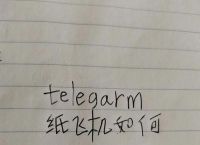 telegarm
纸飞机如何